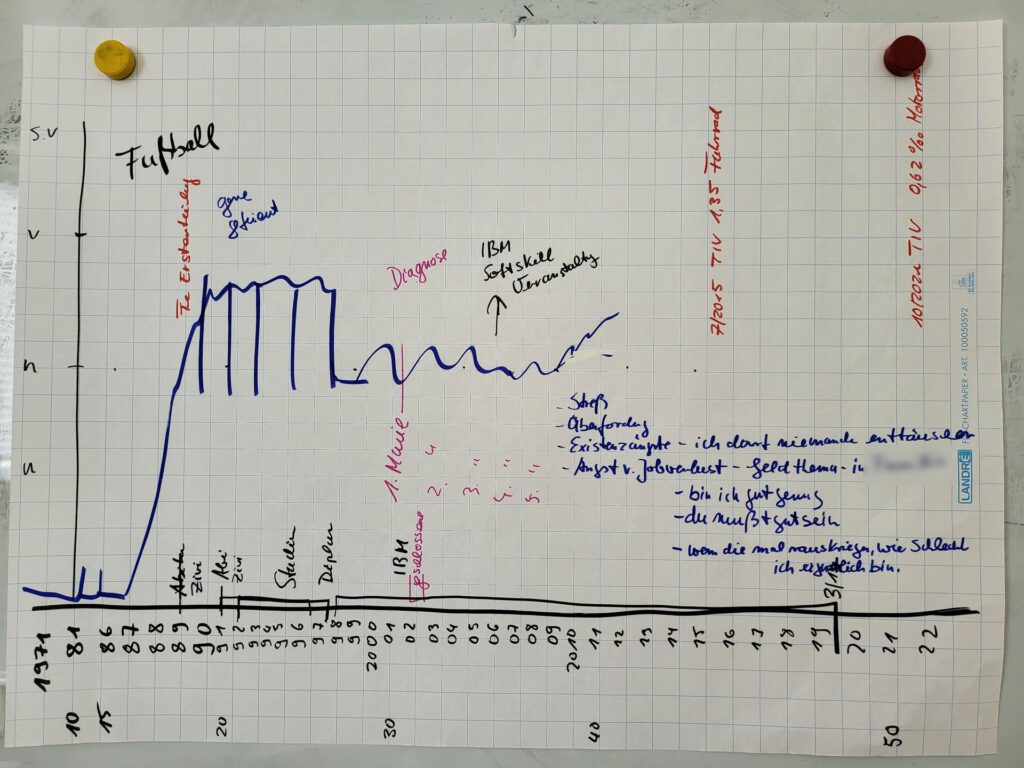 S.V
Fußball
V
n
u
gerne
gefeiert
Diagnose
IBM
Softskill
7/2015 TIV 1,35 Fahrrad
10/2021 TIV 0,62 ‰
- Streß
- Existenzängste - ich darf enttäuschen
- Angst v. Jobverlust - Geldthema - in
- bin ich gut genug
- du mußt gut sein
- wenn die mal rauskriegen, wie schlecht
ich eigentlich bin.
1. Manie
2. "
3. "
4. "
5. "
Zivi
Abi
Zivi
IBM
geschlossene
1971
81
86
87
88
89
90
91
92
93
94
95
96
97
98
99
2000
01
02
03
04
05
06
07
08
09
2010
11
12
13
14
15
16
17
18
19
20
21
22
10
15
20
30
40
50
LANDRÉ
FLIPCHARTPAPIER • ART. 100050592